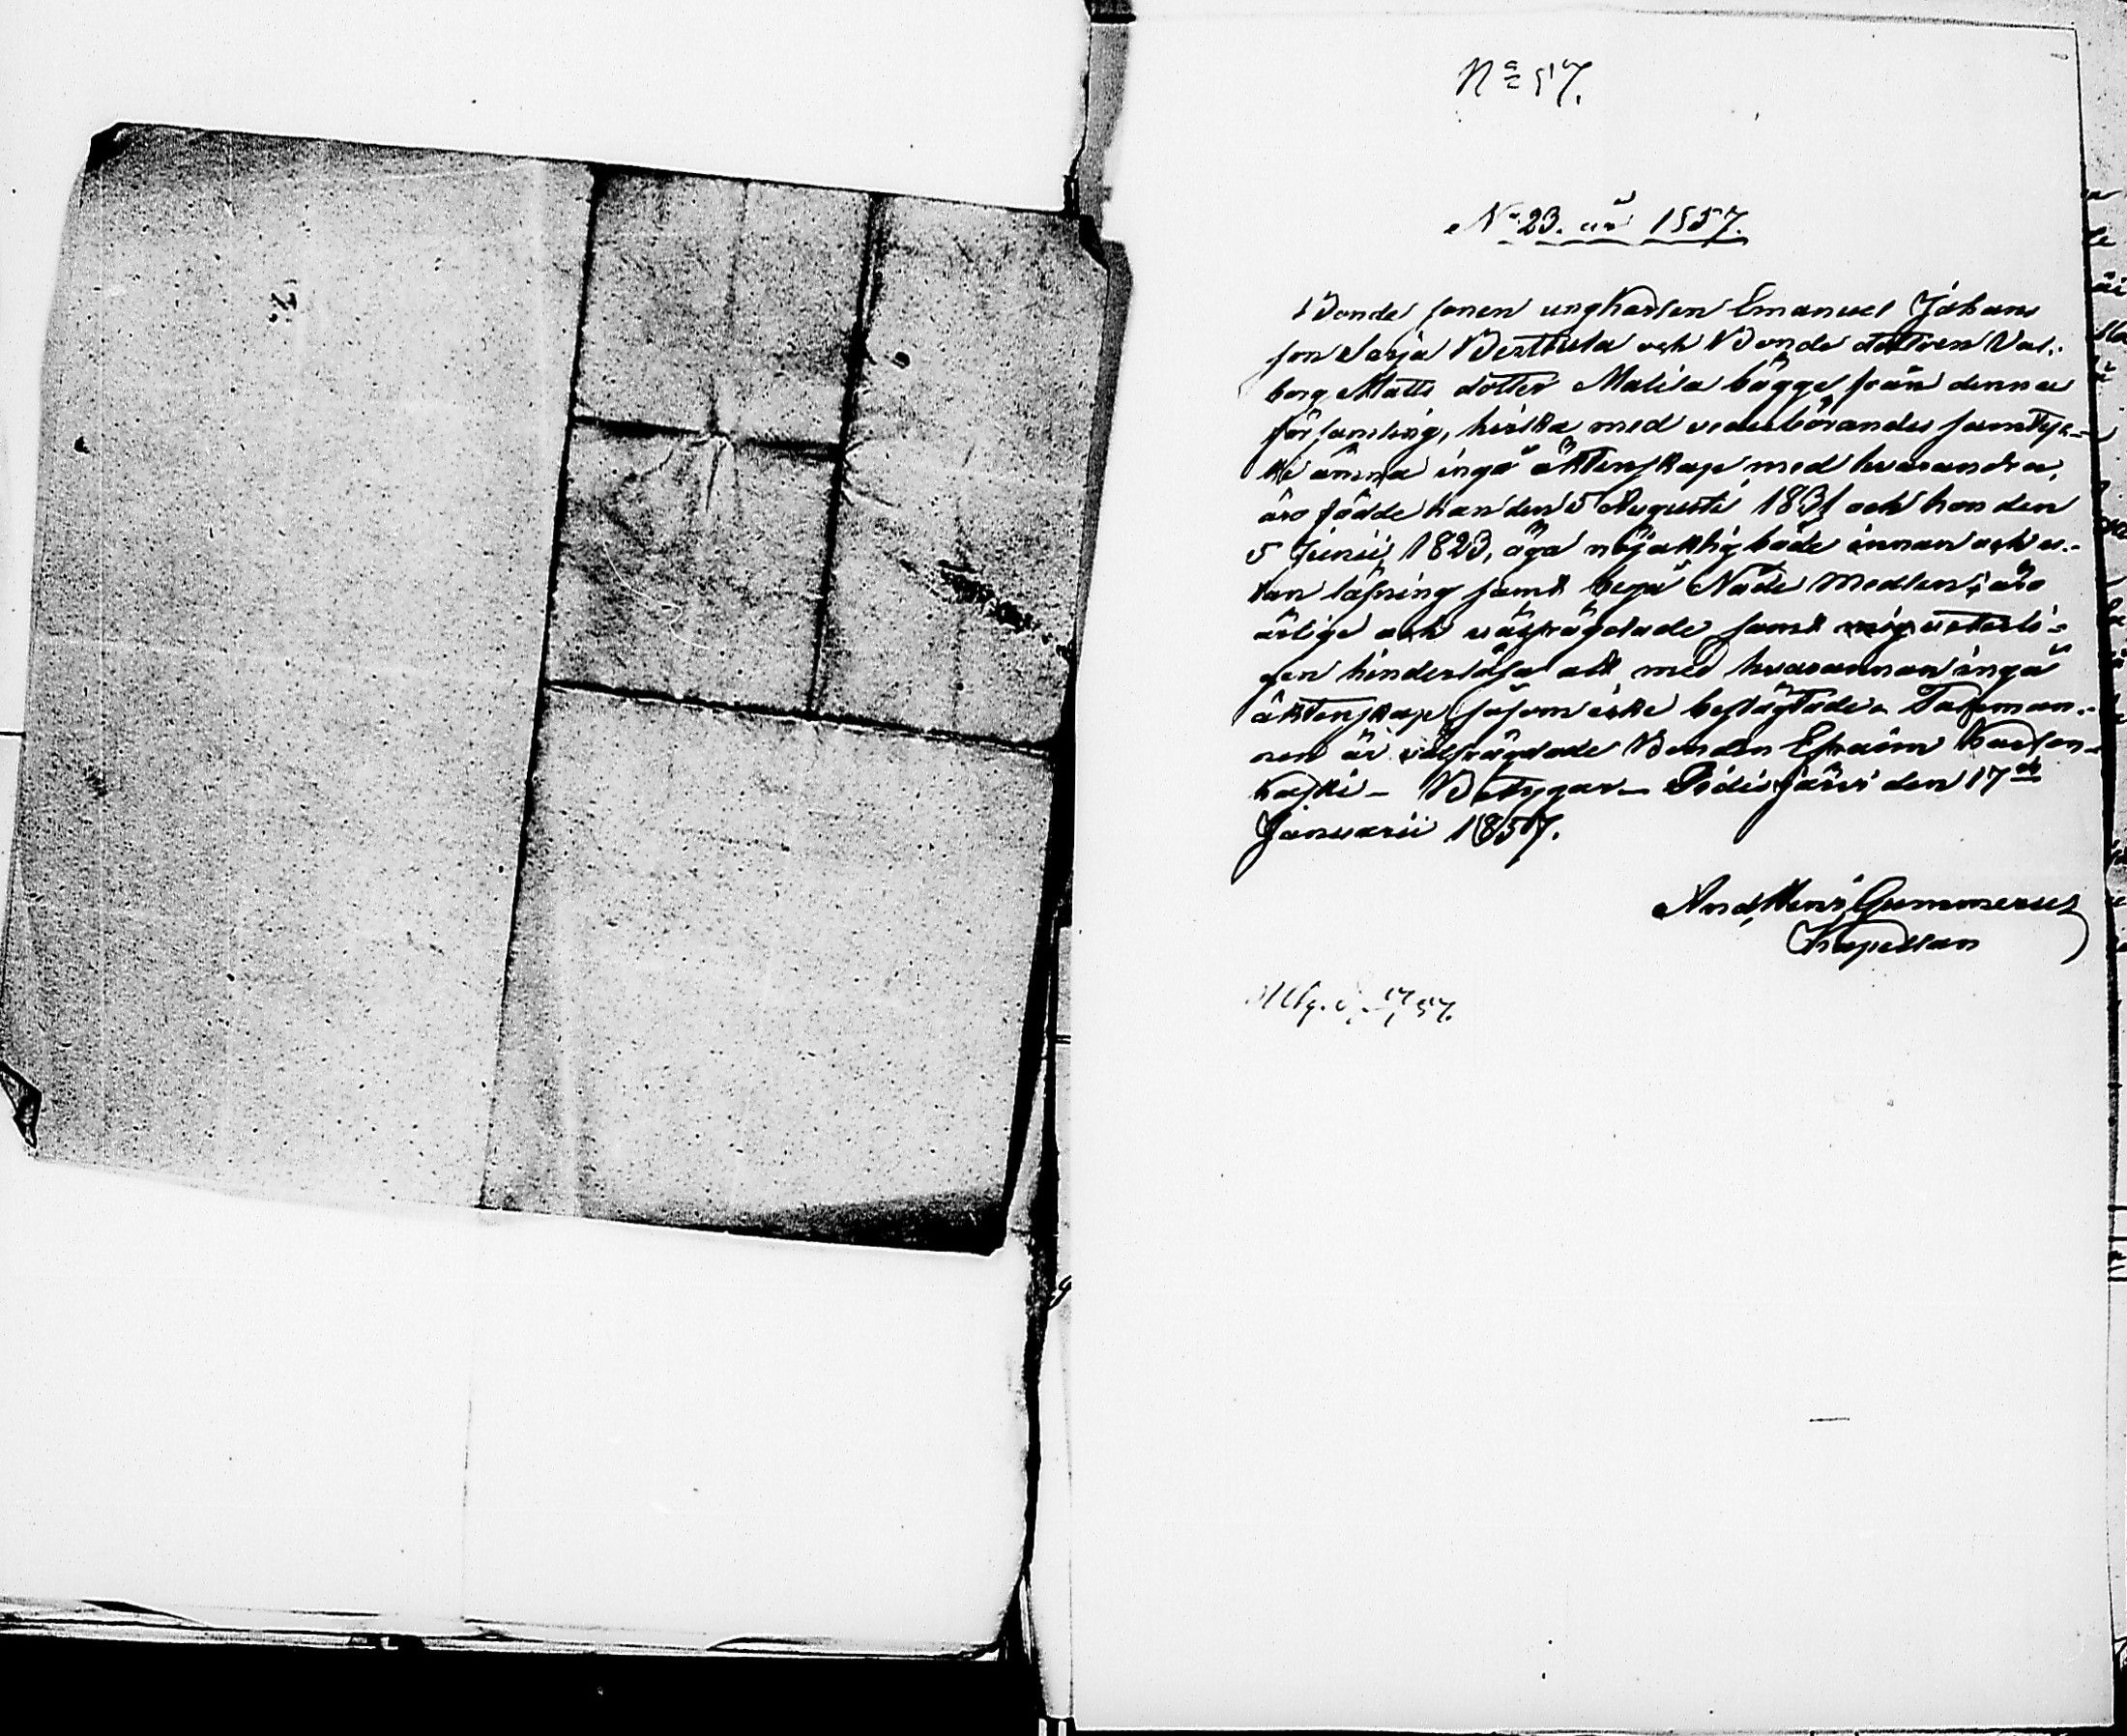 No 57.
No 23. år 1857.
Bonde sonen ungkarlen Emanuel Johans
son Sarja Berttula och Bonde dottren Val-
borg Matts dotter Matila bägge från denna
församling, hvilka med vederbörandes samtyc-
ke ämna ingå äktenskap med hvarandra,
äro födde han den 5 Augusti 1831 och hon den
5 Junii 1823, äga nöjaktig både innan och u-
tan läsning samt begå Nåde Medlen; äro
ärlige och välfrägdade samt vitterli-
gen hinderlösa att med hvarannan ingå
äktenskap såsom icke beslägtade. Taleman-
nen är välfrägdade Bonden Efraim Karlon-
kaski – Betygar – Pidisjärvi den 17de
Januarii 1857.
And, Henr, Gummerus
Kapellan
Utg. d. 17/1 57.